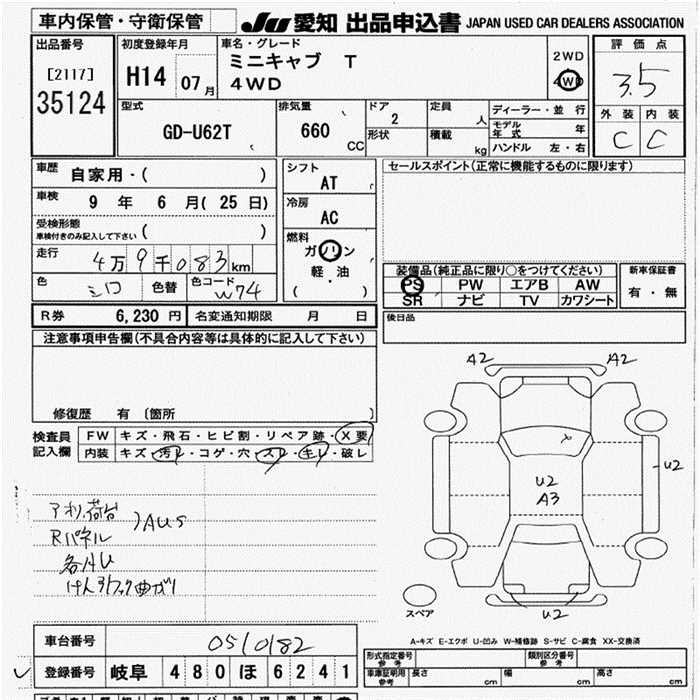 車内保管・守衛保管 JU愛知 出品申込書 JAPAN USED CAR DEALERS ASSOCIATION
出品番号
[2117]
35124
初度登録年月
H14 07月
車名・グレード
ミニキャブ T
4WD
2WD
4WD
評価点
3.5
外装 内装
C C
型式
GD-U62T
排気量
660 CC
ドア
2
形状
定員
人
積載
kg
ディーラー・並行
モデル年式 年
ハンドル 左・右
車歴
自家用・( )
車検
9 年 6 月( 25 日)
受検形態
車検付きのみ記入して下さい ( )
走行
4万9千083km
色 シロ 色替 色コード W74
シフト
AT
冷房
AC
燃料
ガソリン
軽・油
( )
セールスポイント(正常に機能するものに限ります)
装備品(純正品に限り○をつけてください)
PS PW エアB AW
SR ナビ TV カワシート
新車保証書
有・無
R券 6,230 円 名変通知期限 月 日
後日品
注意事項申告欄(不具合内容等は具体的に記入して下さい)
修復歴 有 〔箇所 〕
検査員記入欄
FW キズ・飛石・ヒビ割・リペア跡・X要
内装 キズ・汚レ・コゲ・穴・スレ・キレ・破レ
アオリ、荷台
Rパネル
)AUS
各AU
けん引フック曲がり
A2 A2
U2
U2
A3
U2
スペア
A-キズ E-エクボ U-凹み W-補修跡 S-サビ C-腐食 XX-交換済
車台番号 0510182
登録番号 岐阜 480 ほ 6241
型式指定番号 参考
類別区分番号 参考
車庫証明用 参考 長さ cm 幅 cm 高さ cm